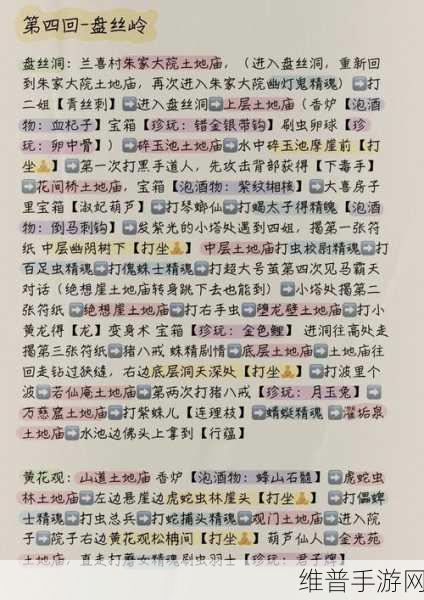 第四回-盘丝岭
盘丝洞：兰喜村朱家大院土地庙，（进入盘丝洞，重新回
到朱家大院土地庙，再次进入朱家大院幽灯鬼精魂）➡打
二姐【青丝刺】➡进入盘丝洞➡上层土地庙（香炉【泡酒
物：血杞子】宝箱【珍玩：错金银带钩】刷虫卵球【珍
玩：卵中骨】）➡碎玉池土地庙➡水中碎玉池摩崖前【打
坐🧘】➡第一次打黑手道人，先攻击背部获得【下毒手】
➡花间桥土地庙，宝箱【泡酒物：紫纹缃核】➡大喜房子
里宝箱【淑妃葫芦】➡打琴螂仙➡打蝎太子得精魄【泡酒
物：倒马刺钩】➡发紫光的小塔处遇到四姐，揭第一张符
纸 中层幽阴树下【打坐🧘】 中层土地庙打虫校尉精魂➡打
百足虫精魂➡打傀蛛士精魂➡打超大号茧第四次见马霸天
对话（绝想崖土地庙转身跳下去也能到）➡小塔处揭第二
张符纸➡绝想崖土地庙➡打右手虫➡堕龙壁土地庙➡打小
黄龙得【龙】变身术 宝箱【珍玩：金色鲤】 进洞往高处走
揭第三张符纸➡猪八戒 蛛精剧情➡底层土地庙➡土地庙往
回走钻过狭缝，右边底层洞天深处【打坐🧘】➡打波里个
波➡若仙庵土地庙➡第两次打猪八戒【珍玩：月玉兔】➡
万慈窟土地庙➡打紫蛛儿【连理枝】➡蜻蜓精魂➡濯垢泉
土地庙➡水池边佛头上拿到【行蕴】
黄花观：山道土地庙 香炉【泡酒物：蜂山石髓】➡虎蛇虫
林土地庙➡左边悬崖边虎蛇虫林崖头【打坐🧘】➡打儡蜱
士精魂➡打虫总兵➡打蛇捕头精魂➡观门土地庙➡进入院
子➡院子右边黄花观松柟间【打坐🧘】 葫芦仙人➡金光苑
土地庙，直走打磨女精魂刷虫羽士【珍玩：君子牌】
维普手游网